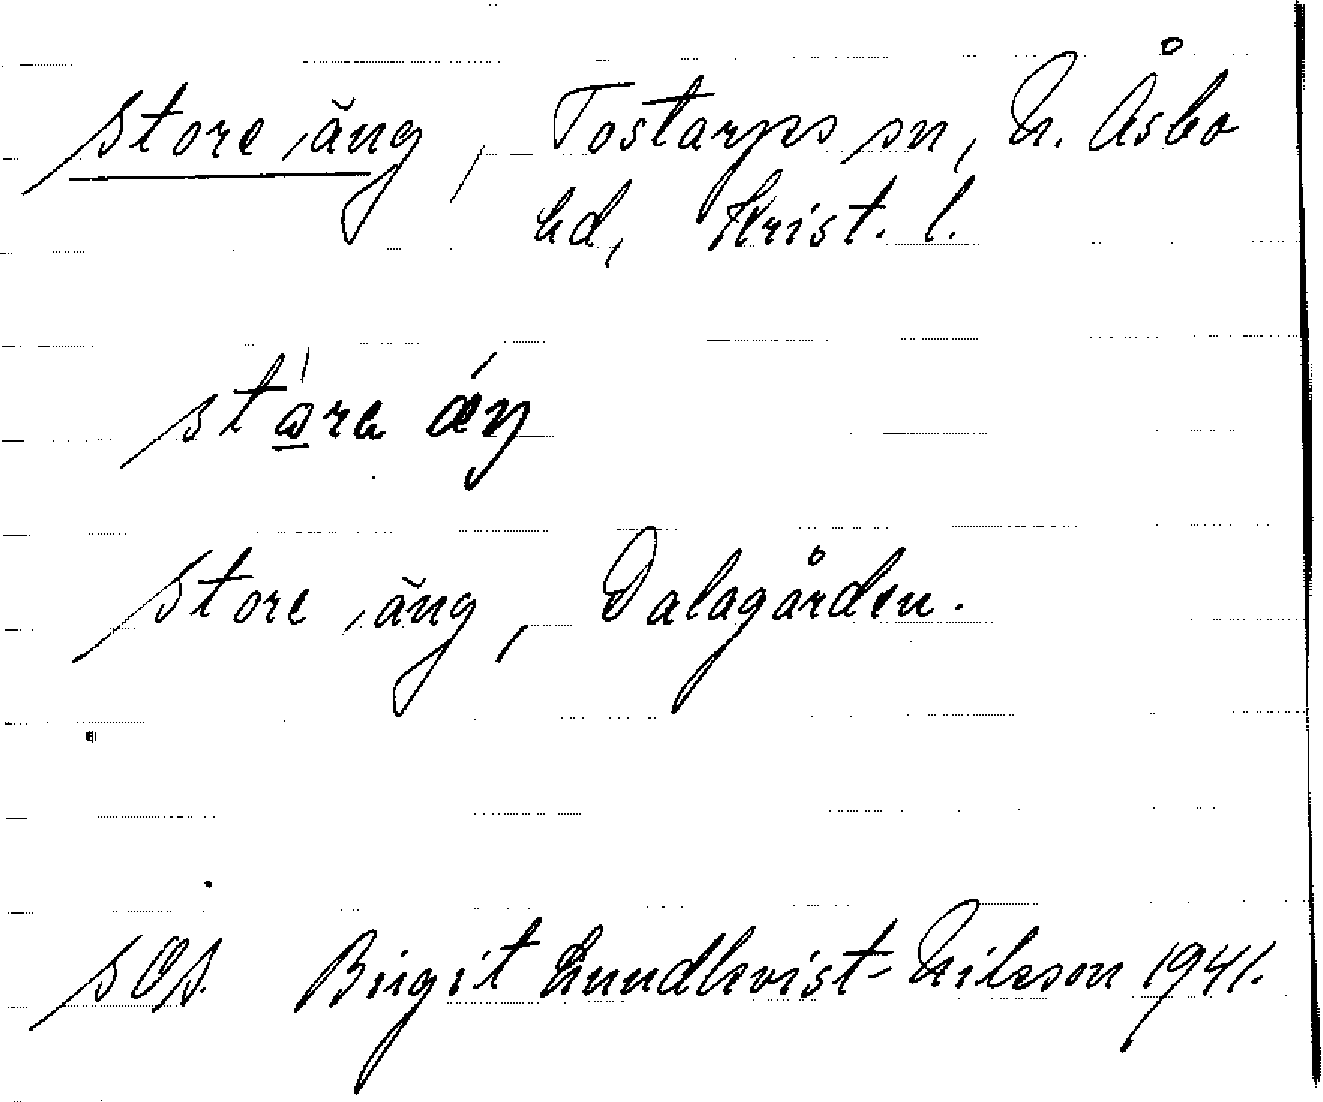 Store äng, Tostarps sn, N. Åsbo
hd, Krist. l.
Store äng, Dalagården.
Birgit Lundkvist-Nilsson 1941.